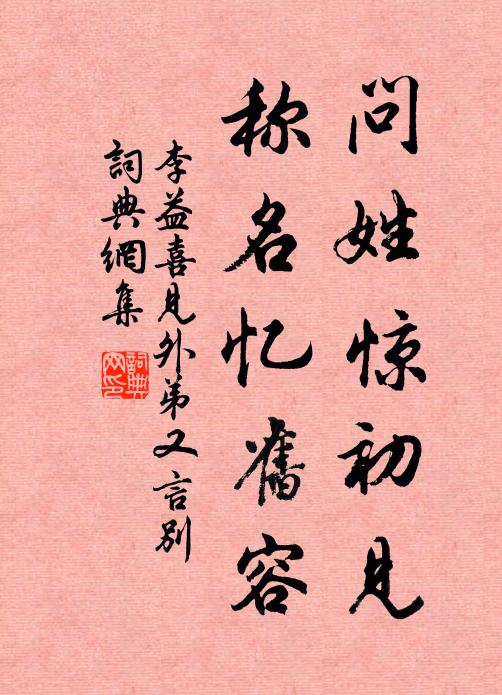 问姓惊初见
称名忆舊容
李益喜見外弟又言别
詞典網集
詞典网印